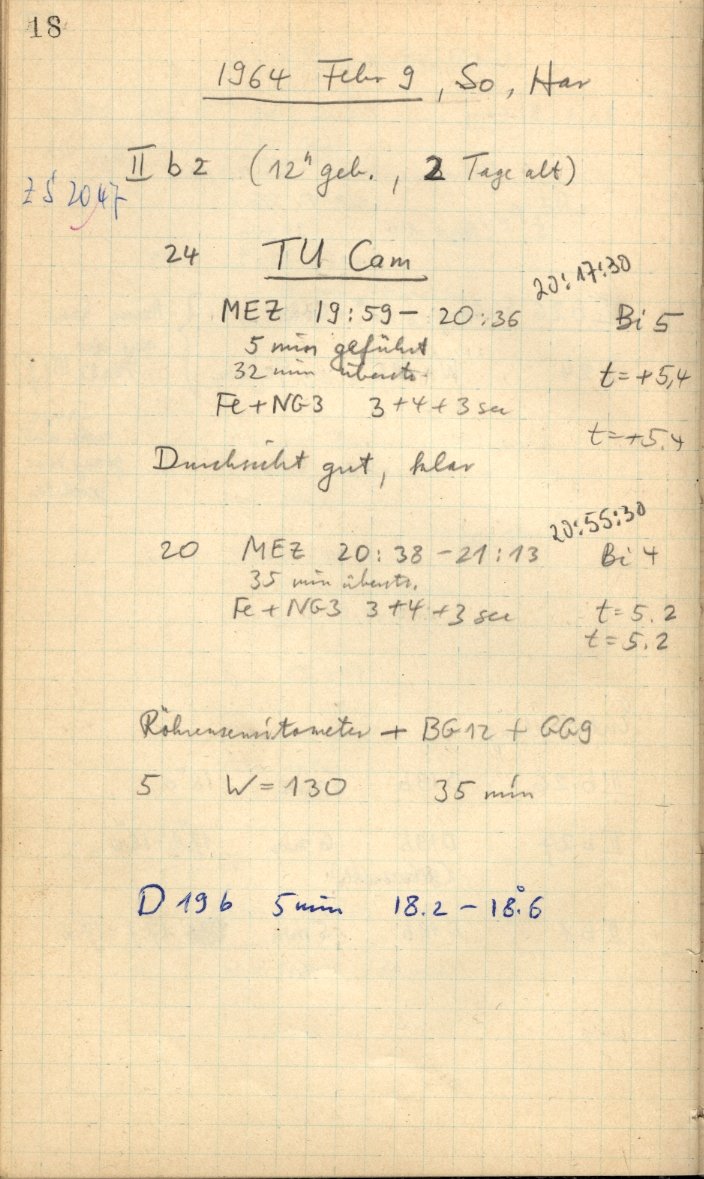 18
1964 Febr 9, So, Har
II b 2 (12h geb., 2 Tage alt)
ZS 2047
24 TU Cam
20:17:30
MEZ 19:59 – 20:36 Bi 5
5 min geführt
32 min überstr. t = +5,4
Fe + NG3 3+4+3 sec
t = +5.4
Durchsicht gut, klar
20:55:30
20 MEZ 20:38 – 21:13 Bi 4
35 min überstr.
Fe + NG3 3+4+3 sec t = 5.2
t = 5.2
Röhrensensitometer + BG12 + GG9
5 W = 130 35 min
D 19 b 5 min 18.2 – 18°.6